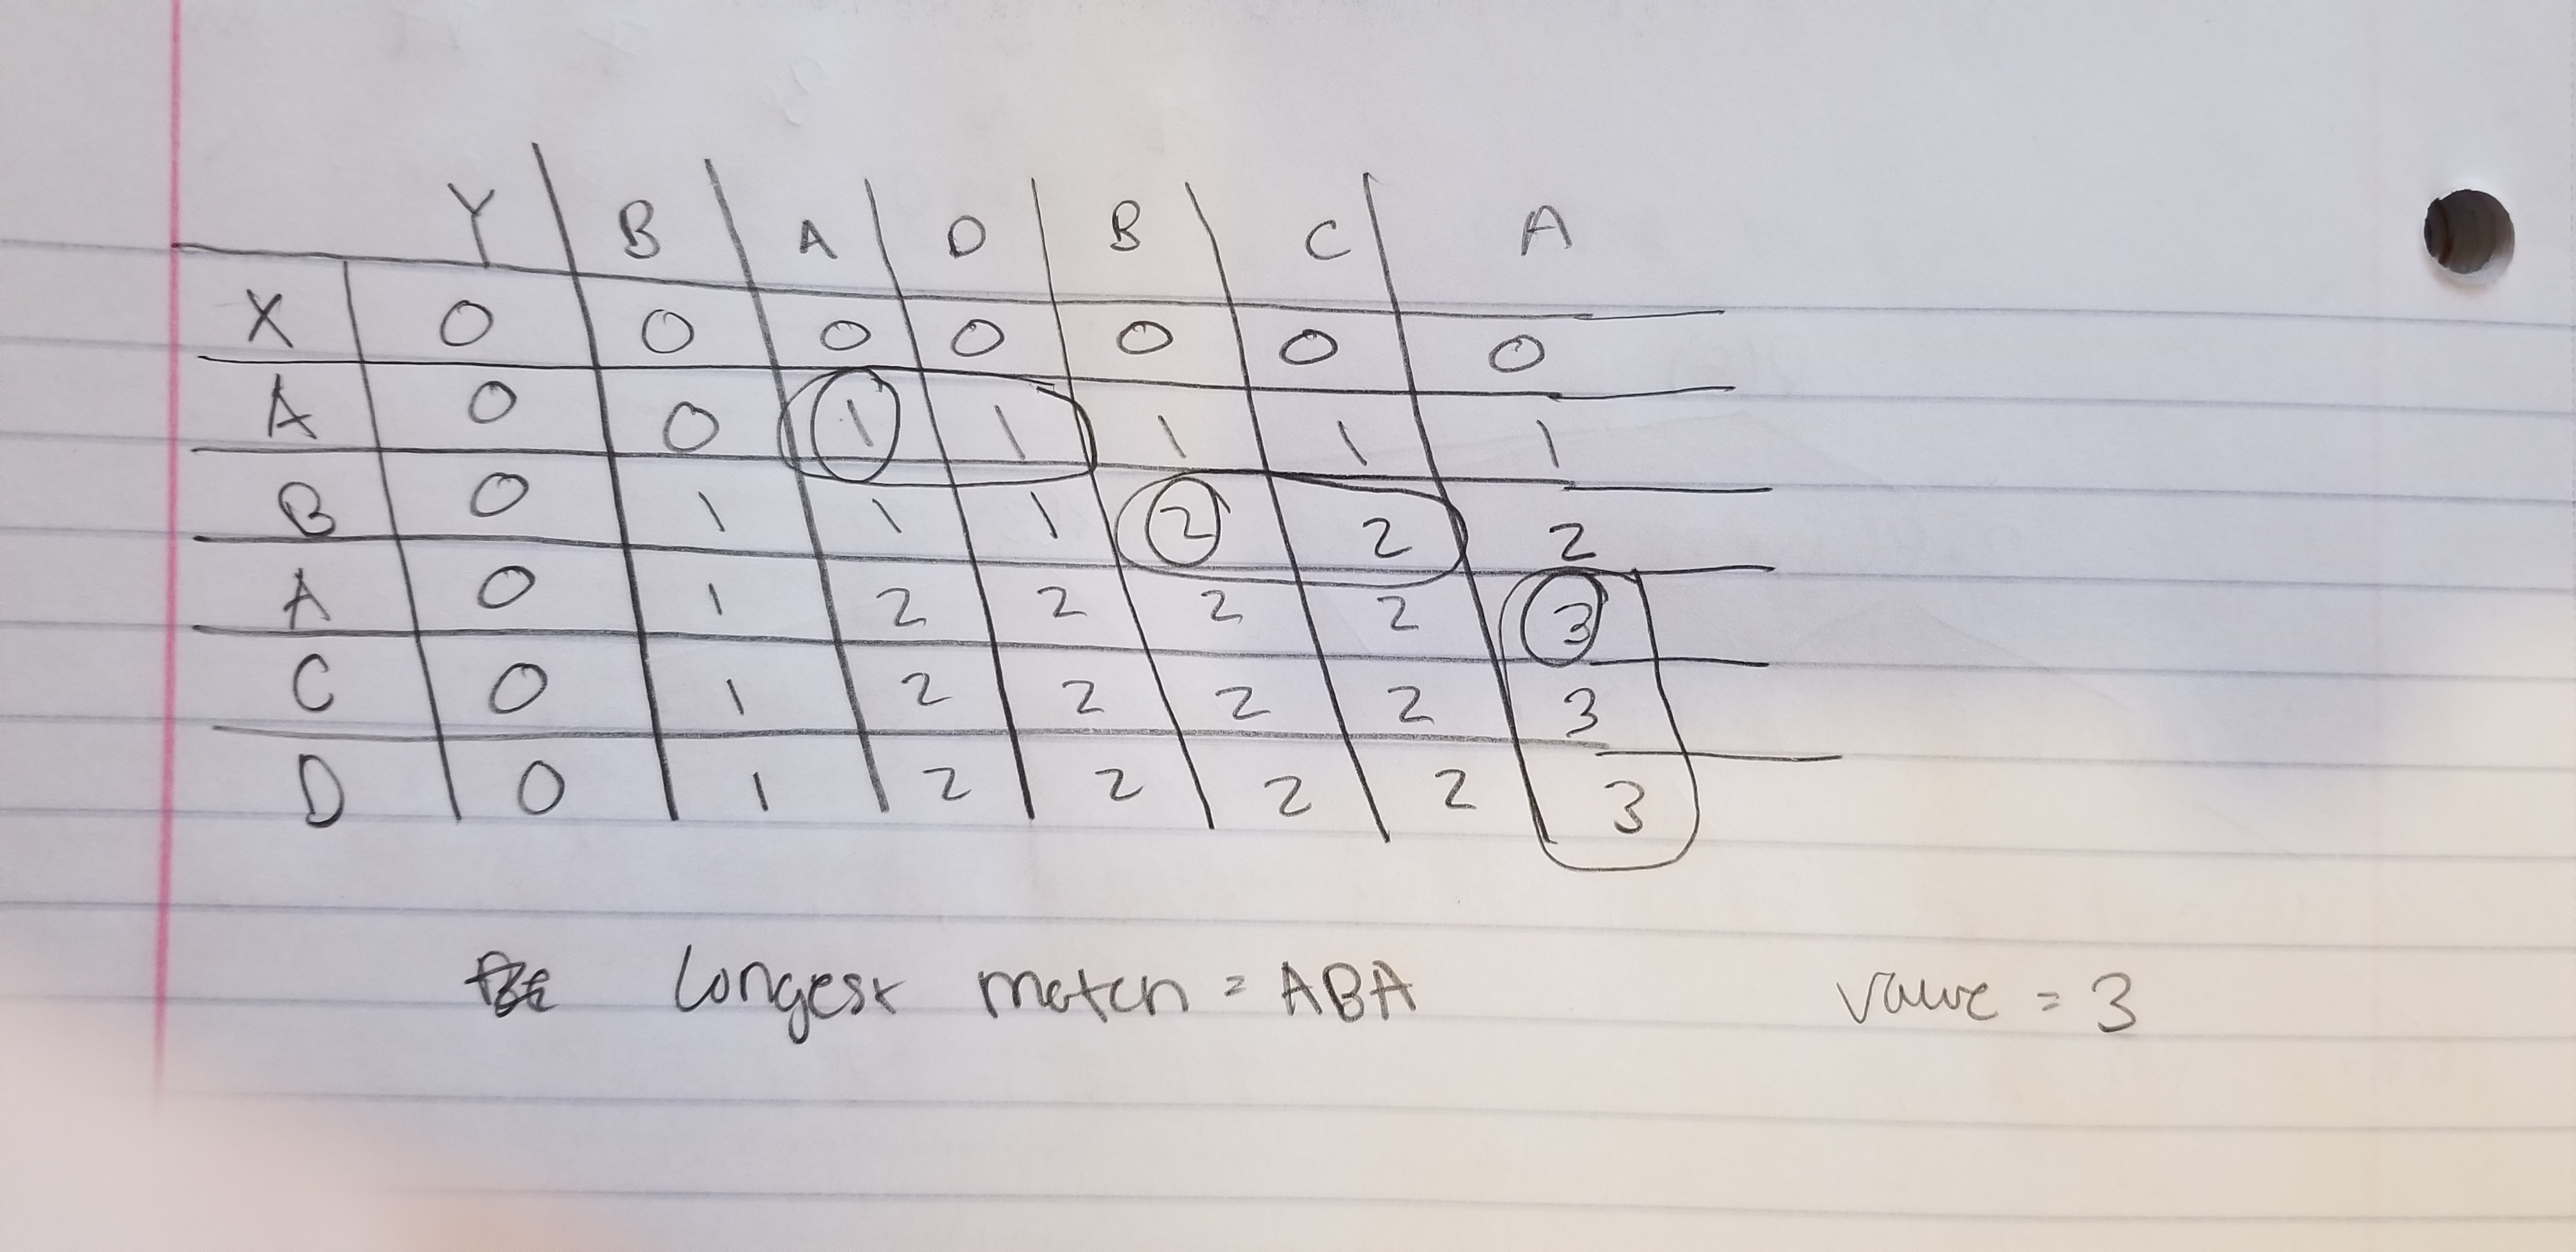 Y B A D B C A
X 0 0 0 0 0 0 0
A 0 0 1 1 1 1 1
B 0 1 1 1 2 2 2
A 0 1 2 2 2 2 3
C 0 1 2 2 2 2 3
D 0 1 2 2 2 2 3
Longest match = ABA value = 3